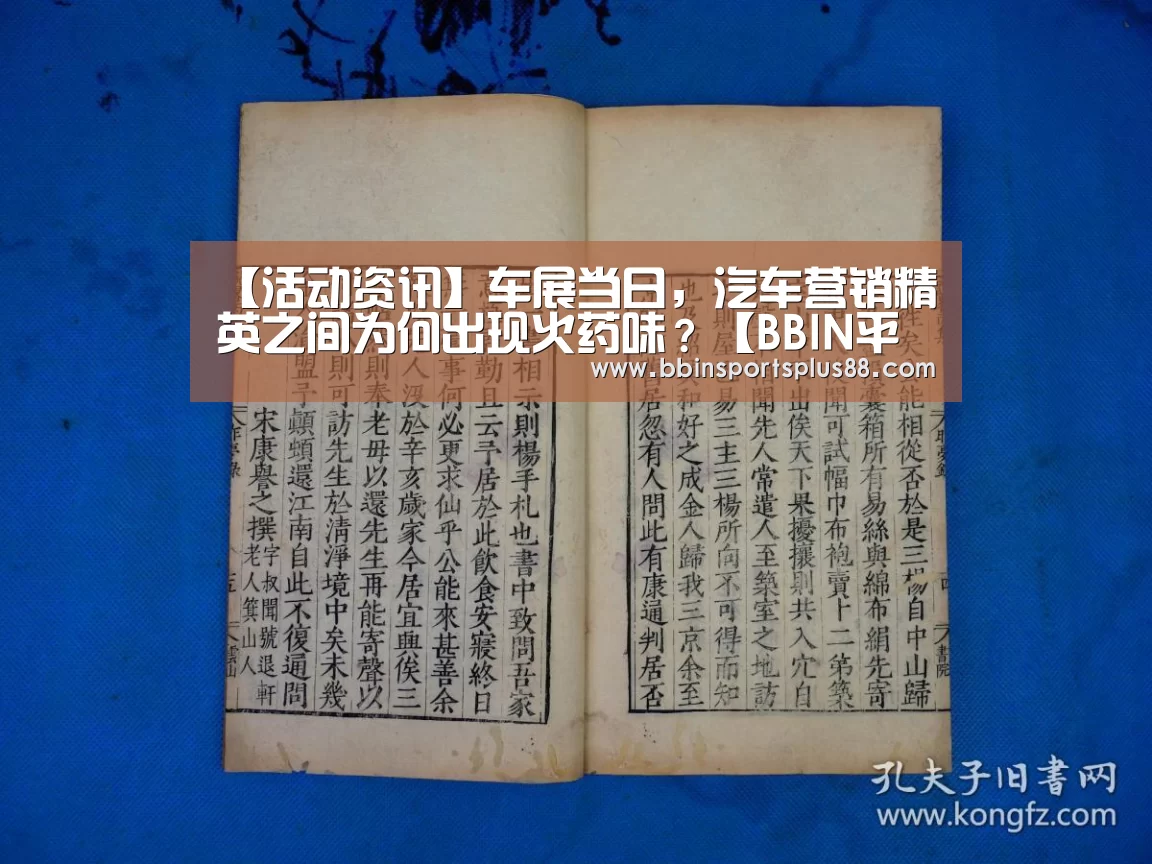 【活动资讯】车展当日，汽车营销精
英之间为何出现火药味？【BBIN平
www.bbinsportsplus88.com
能相從否於是三楊自中山歸
囊箱所有易絲與綿布絹先寄
聞可試幅巾布袍賣卜二第築
出俟天下果擾攘則共入穴自
聞先人常遣人至築室之地訪
則屋已易三主三楊所向不可得而知
和好之成金人歸我三京余至
居忽有人問此有康通判居否
書院
相示則楊手札也書中致問吾家
勤且云予居於此飲食安寢終日
事何必更求仙乎公能來甚善余
人沒於辛亥歲家今居宜興俟三
則奉老母以還先生再能寄聲以
則可訪先生於清淨境中矣未幾
盟予顛頓還江南自此不復通問
宋康譽之撰
字叔聞號退軒
老人箕山人
五
雲山
孔夫子旧书网
www.kongfz.com